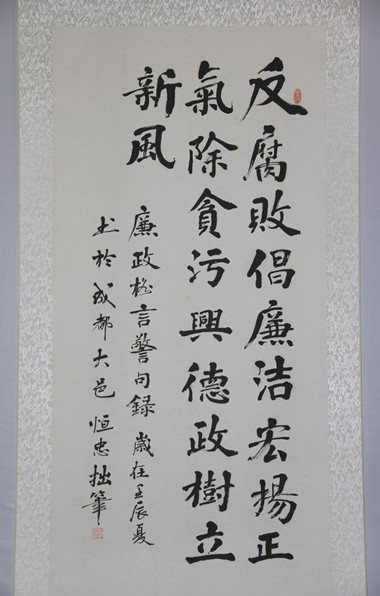 反腐敗倡廉洁宏揚正
氣除貪污興德政樹立
新風
廉政格言警句録 歲在壬辰夏
书於成都大邑 恒忠拙筆